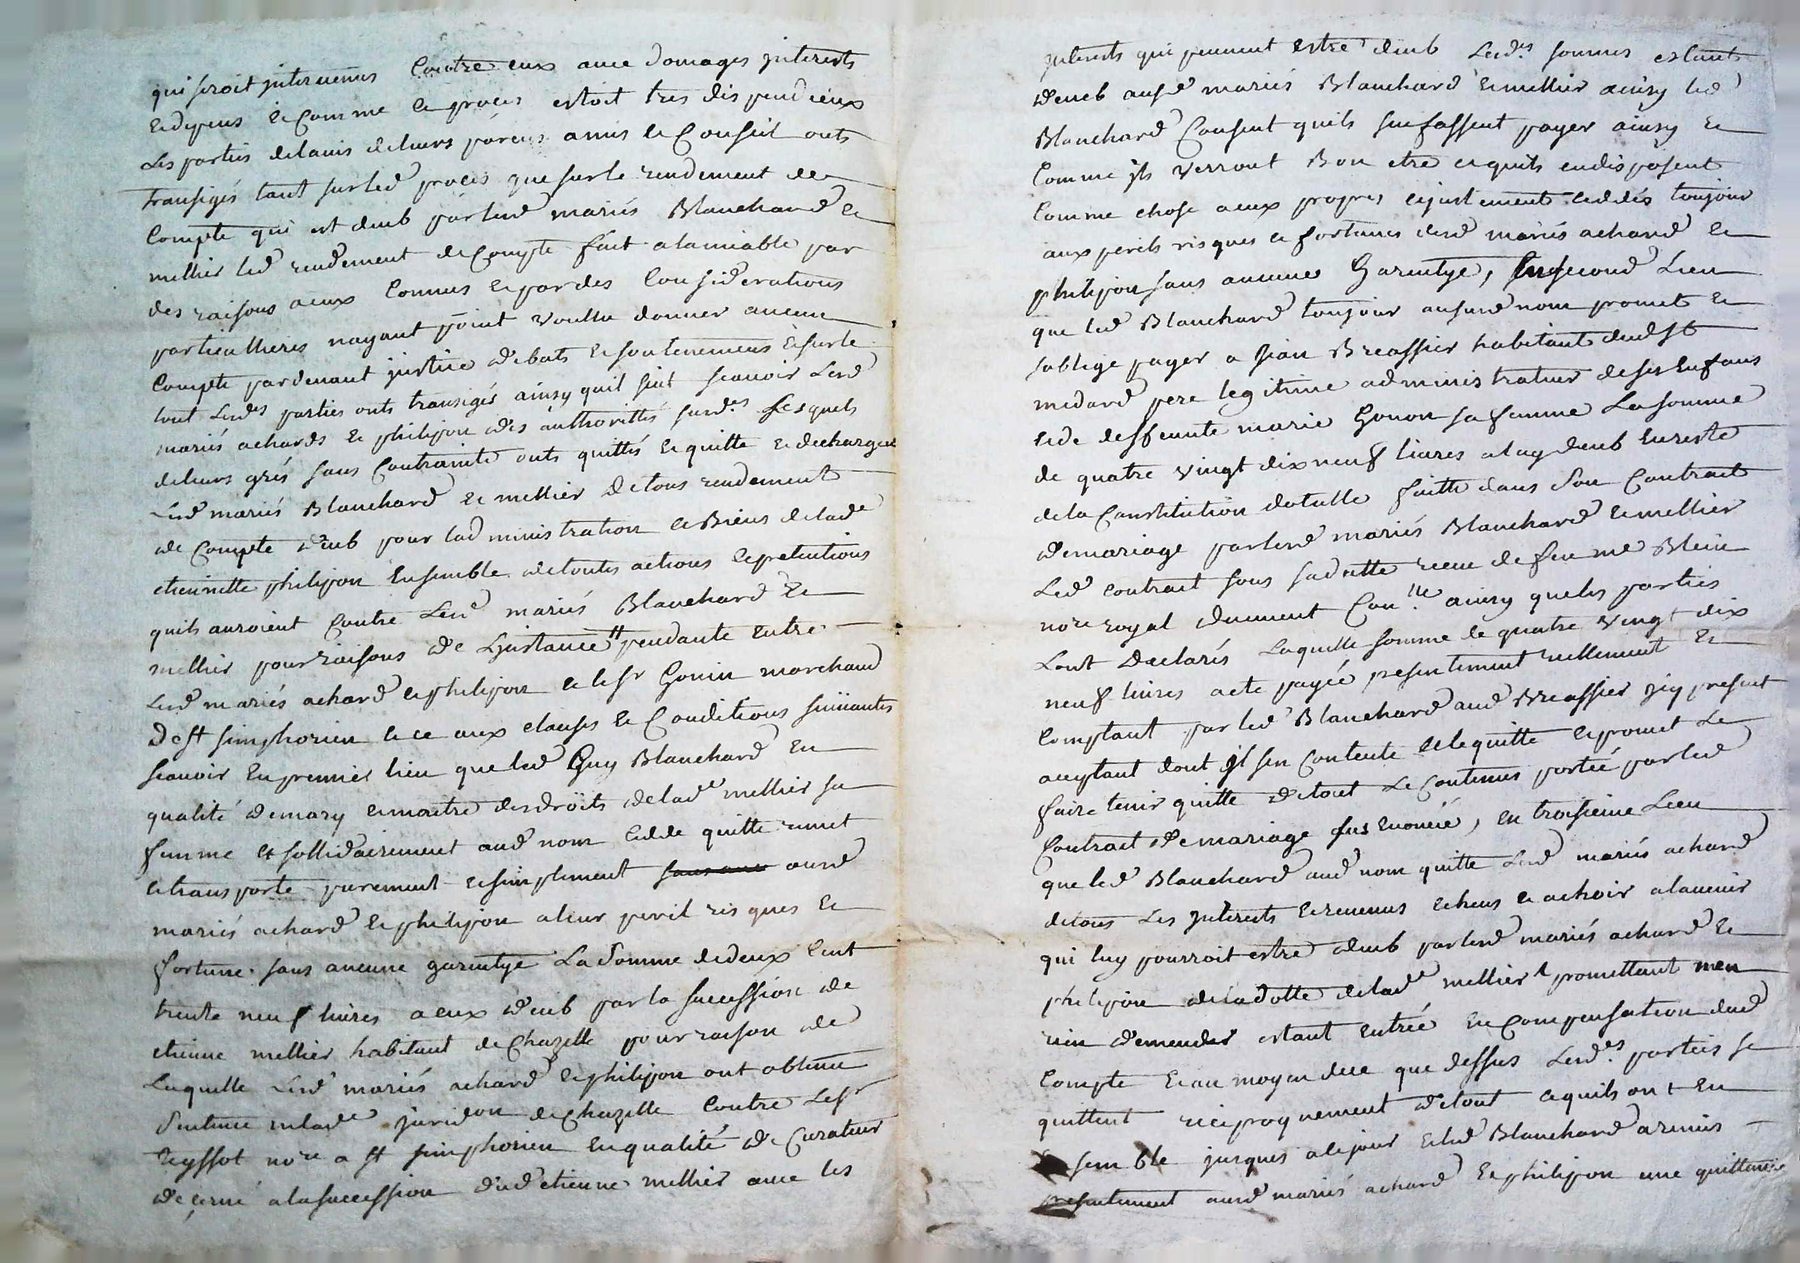 qui seroit jntervenus Contre eux avec domages jnterests
et depens et Comme le proces estoit tres dispendieux
Les parties de lavis de leurs parens amis et Conseil onts
transigés tant sur led proces que sur le rendement de
Compte qui est deub par lesd mariés Blanchard et
mellier led rendement de Compte fait a lamiable par
des raisons a eux Connus et par des Considerations
particulheres nayant point voullu donner aucun
Compte pardevant justice debats et soutenemens et sur le
tout Lesdes parties onts transigés ainsy quil suit scavoir Lesd
mariés achards et philipon des authorittés susdes Lesquels
de leurs grés sans Contrainte onts quittés et quitte et decharge
Lesd mariés Blanchard et mellier de tous rendement
de Compte deub pour ladministration et Biens de lade
etiennette philipon Ensemble de toutes actions et pretentions
quils auroient Contre Lesd mariés Blanchard et
mellier pour raisons de Ljnstance pendante Entre
Lesd mariés achard et philipon et le sr Gonin marchand
de st simphorien et ce aux clauses et Conditions suivantes
scavoir En premier lieu que led Guy Blanchard En
qualité de mary et maitre des droits de lade mellier sa
femme et sollidairement aud nom Cedde quitte remet
et transporte purement et simplement sans auc ausd
mariés achard et philipon a leur peril risques et
fortune sans aucune garentye La Somme de deux Cent
trente neuf livres a eux deub par la succession de
etienne mellier habitant de Chazelle pour raison de
Laquelle Lesd mariés achard et philipon ont obtenu
Sentence en lade juridon de Chazelle Contre Le sr
Teyssot nore a st simphorien En qualité de Curateur
decerné a la succession dud etienne mellier avec les
jnterests qui peuvent estre deub Lesdes sommes estants
deueb ausd mariés Blanchard et mellier ainsy led
Blanchard Consent quils sen fassent payer ainsy et
Comme jls verront Bon etre et quils en disposent
Comme chose a eux propres et justement Ceddés toujour
aux perils risques et fortunes desd mariés achard et
philipon sans aucune Garentye, En second Lieu
que led Blanchard toujour aususd nom promet et
soblige payer a Jean Breassier habitant dud st
medard pere legitime administrateur de ses Enfans
et de deffeunte marie Gonon sa femme La somme
de quatre vingt dix neuf livres a luy deub En reste
de la Constitution dotalle faitte dans Son Contract
de mariage par lesd mariés Blanchard et mellier
Led contract sous sa datte receu de feu me Blein
nore royal deument Conlle ainsy que les parties
Lont Declarés Laquelle somme de quatre vingt dix
neuf livres a ete payée presentement reellement et
Comptant par led Blanchard aud Breassier jcy present
acceptant dont jl sen Contente et le quitte et promet Le
faire tenir quitte de tout Le Contenus porté par led
Contract de mariage sus Enoncé, en troisieme Lieu
que led Blanchard aud nom quitte Lesd mariés achard
de tous Les jnterests et revenus Echeus et a choir a lavenir
qui luy pourroit estre deub par lesd mariés achard et
philipon de la dotte de lade mellier promettant nen
rien demender estant Entrée En Compensation dud
Compte Et au moyen de ce que dessus Lesdes parties se
quittent reciproquement de tout ce quils ont En
semble jusques a le jour et led Blanchard a remis
presentement ausd mariés achard et philipon une quittance